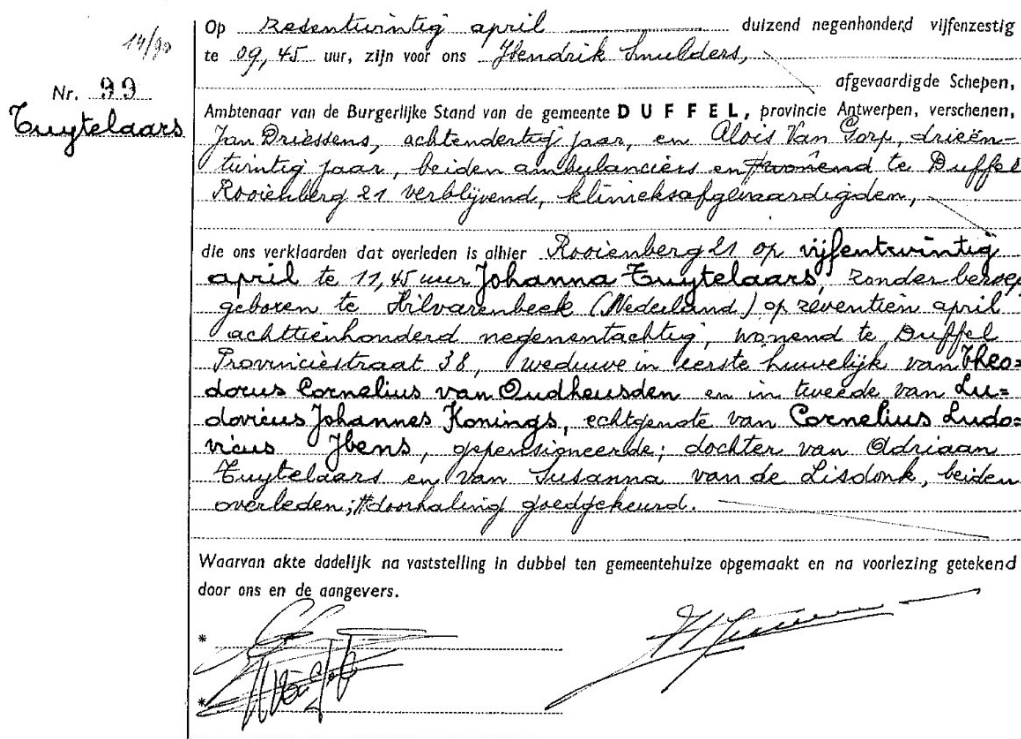 14/90
Nr. 99
Tuytelaars
Op zesentwintig april duizend negenhonderd vijfenzestig
te 09,45 uur, zijn voor ons Hendrik Smulders,
afgevaardigde Schepen,
Ambtenaar van de Burgerlijke Stand van de gemeente DUFFEL, provincie Antwerpen, verschenen,
Jan Driessens, achtendertig jaar, en Aloïs Van Gorp, drieën-
twintig jaar, beiden ambulanciers en wonend te Duffel
Rooienberg 21 verblijvend, klinieksafgevaardigden,
die ons verklaarden dat overleden is alhier Rooienberg 21 op vijfentwintig
april te 11,45 uur Johanna Tuytelaars, zonder beroep
geboren te Hilvarenbeek (Nederland) op zeventien april
achttienhonderd negenentachtig, wonend te Duffel
Provinciestraat 38, weduwe in eerste huwelijk van Theo=
dorus Cornelius van Oudheusden en in tweede van Lu=
dovicus Johannes Konings, echtgenote van Cornelius Ludo=
vicus Ibens, gepensioneerde; dochter van Adriaan
Tuytelaars en van Susanna van de Lisdonk, beiden
overleden; # doorhaling goedgekeurd.
Waarvan akte dadelijk na vaststelling in dubbel ten gemeentehuize opgemaakt en na voorlezing getekend
door ons en de aangevers.
*
*